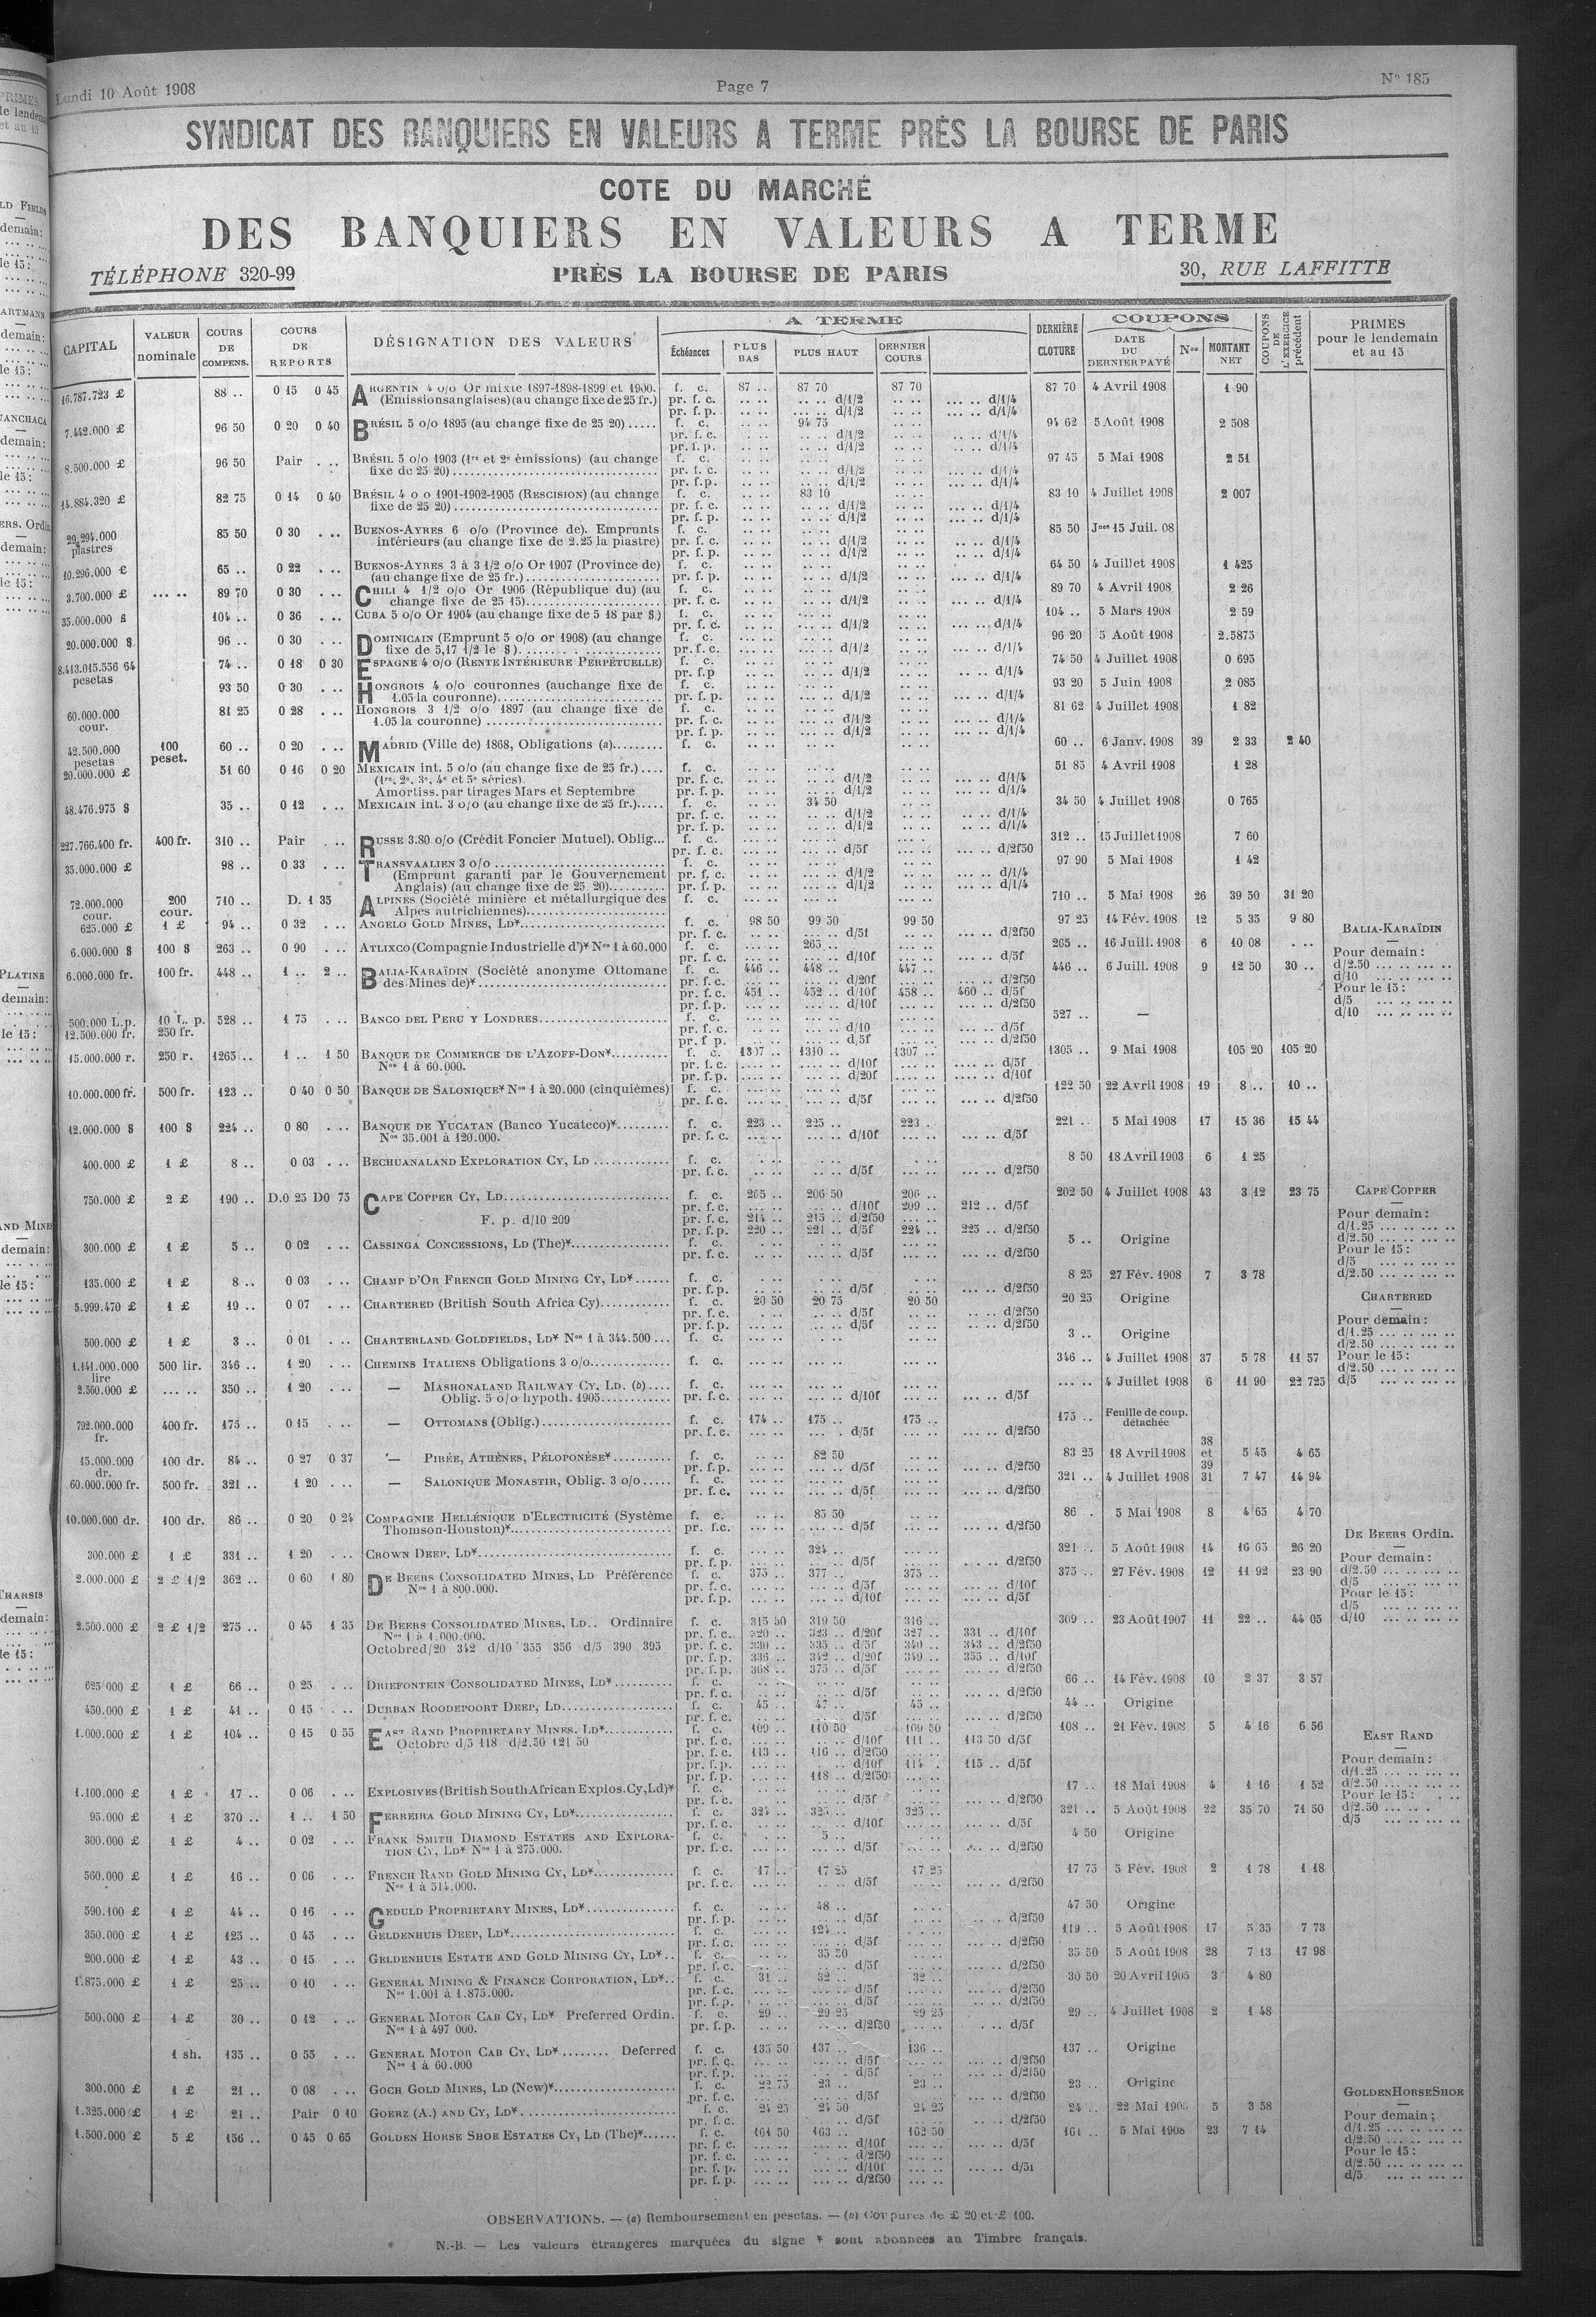 Lundi 10 Août 1908
Page 7
N° 185
SYNDICAT DES BANQUIERS EN VALEURS A TERME PRÈS LA BOURSE DE PARIS
COTE DU MARCHÉ
DES BANQUIERS EN VALEURS A TERME
TÉLÉPHONE 320-99
PRÈS LA BOURSE DE PARIS
30, RUE LAFFITTE
CAPITAL VALEUR nominale COURS DE COMPENS. COURS DE REPORTS DÉSIGNATION DES VALEURS A TERME Échéances PLUS BAS PLUS HAUT DERNIER COURS DERNIÈRE CLOTURE COUPONS DATE DU DERNIER PAYÉ Nos MONTANT NET COUPONS DE L'EXERCICE précédent PRIMES pour le lendemain et au 15
16.787.723 £ 88 .. 0 15 0 45 ARGENTIN 4 o/o Or mixte 1897-1898-1899 et 1900. f. c. 87 .. 87 70 87 70 87 70 4 Avril 1908 1 90
(Emissions anglaises) (au change fixe de 25 fr.) pr. f. c. d/1/2 d/1/4
pr. f. p. d/1/2 d/1/4
7.442.000 £ 96 50 0 20 0 40 BRÉSIL 5 o/o 1895 (au change fixe de 25 20) ..... f. c. 94 75 94 62 5 Août 1908 2 508
pr. f. c. d/1/2 d/1/4
pr. f. p. d/1/2 d/1/4
8.500.000 £ 96 50 Pair BRÉSIL 5 o/o 1903 (1re et 2e émissions) (au change fixe de 25 20) f. c. 97 45 5 Mai 1908 2 51
pr. f. c. d/1/2 d/1/4
pr. f. p. d/1/2 d/1/4
14.884.320 £ 82 75 0 14 0 40 BRÉSIL 4 o o 1901-1902-1905 (RESCISION) (au change fixe de 25 20) f. c. 83 10 83 10 4 Juillet 1908 2 007
pr. f. c. d/1/2 d/1/4
pr. f. p. d/1/2 d/1/4
29.294.000 piastres 85 50 0 30 BUENOS-AYRES 6 o/o (Province de). Emprunts intérieurs (au change fixe de 2.25 la piastre) f. c. 85 50 Jnce 15 Juil. 08
pr. f. c. d/1/2 d/1/4
pr. f. p. d/1/2 d/1/4
10.296.000 £ 65 .. 0 22 BUENOS-AYRES 3 à 3 1/2 o/o Or 1907 (Province de) (au change fixe de 25 fr.) f. c. 64 50 4 Juillet 1908 1 425
pr. f. p. d/1/2 d/1/4
3.700.000 £ 89 70 0 30 CHILI 4 1/2 o/o Or 1906 (République du) (au change fixe de 25 15) f. c. 89 70 4 Avril 1908 2 26
pr. f. c. d/1/2 d/1/4
35.000.000 $ 104 .. 0 36 CUBA 5 o/o Or 1904 (au change fixe de 5 18 par $) f. c. 104 .. 5 Mars 1908 2 59
pr. f. c. d/1/2 d/1/4
20.000.000 $ 96 .. 0 30 DOMINICAIN (Emprunt 5 o/o or 1908) (au change fixe de 5,17 1/2 le $) f. c. 96 20 5 Août 1908 2.5875
pr. f. c. d/1/2 d/1/4
8.413.015.556 64 pesetas 74 .. 0 18 0 30 ESPAGNE 4 o/o (RENTE INTÉRIEURE PERPÉTUELLE) f. c. 74 50 4 Juillet 1908 0 695
pr. f. p d/1/2 d/1/4
93 50 0 30 HONGROIS 4 o/o couronnes (au change fixe de 1.05 la couronne) f. c. 93 20 5 Juin 1908 2 085
pr. f. p. d/1/2 d/1/4
60.000.000 cour. 81 25 0 28 HONGROIS 3 1/2 o/o 1897 (au change fixe de 1.05 la couronne) f. c. 81 62 4 Juillet 1908 1 82
pr. f. c. d/1/2 d/1/4
pr. f. p. d/1/2 d/1/4
42.500.000 pesetas 100 peset. 60 .. 0 20 MADRID (Ville de) 1868, Obligations (a) f. c. 60 .. 6 Janv. 1908 39 2 33 2 40
20.000.000 £ 51 60 0 16 0 20 MEXICAIN int. 5 o/o (au change fixe de 25 fr.) .... f. c. 51 85 4 Avril 1908 1 28
(1re, 2e, 3e, 4e et 5e séries). pr. f. c. d/1/2 d/1/4
Amortiss. par tirages Mars et Septembre pr. f. p. d/1/2 d/1/4
48.476.975 $ 35 .. 0 12 MEXICAIN int. 3 o/o (au change fixe de 25 fr.) f. c. 34 50 34 50 4 Juillet 1908 0 765
pr. f. c. d/1/2 d/1/4
pr. f. p. d/1/2 d/1/4
227.766.400 fr. 400 fr. 310 .. Pair RUSSE 3.80 o/o (Crédit Foncier Mutuel). Oblig... f. c. 312 .. 15 Juillet 1908 7 60
pr. f. c. d/5f d/2f50
35.000.000 £ 98 .. 0 33 TRANSVAALIEN 3 o/o f. c. 97 90 5 Mai 1908 1 42
(Emprunt garanti par le Gouvernement pr. f. c. d/1/2 d/1/4
Anglais) (au change fixe de 25 20) pr. f. p. d/1/2 d/1/4
72.000.000 cour. 200 cour. 710 .. D. 1 35 ALPINES (Société minière et métallurgique des Alpes autrichiennes) f. c. 710 .. 5 Mai 1908 26 39 50 31 20
625.000 £ 1 £ 94 .. 0 32 ANGELO GOLD MINES, LD* f. c. 98 50 99 50 99 50 97 25 14 Fév. 1908 12 5 35 9 80
pr. f. c. d/5f d/2f50
6.000.000 $ 100 $ 263 .. 0 90 ATLIXCO (Compagnie Industrielle d')* Nos 1 à 60.000 f. c. 265 .. 265 .. 16 Juill. 1908 6 10 08
pr. f. c. d/10f d/5f
6.000.000 fr. 100 fr. 448 .. 1 .. 2 .. BALIA-KARAÏDIN (Société anonyme Ottomane des Mines de)* f. c. 446 .. 448 .. 447 .. 446 .. 6 Juill. 1908 9 12 50 30 ..
pr. f. c. d/20f d/2f50
pr. f. c. 451 .. 452 .. d/10f 458 .. 460 .. d/5f
pr. f. p. d/10f d/2f50
BALIA-KARAÏDIN
Pour demain :
d/2.50
d/10
Pour le 15 :
d/5
d/10
500.000 L.p. 12.500.000 fr. 10 L. p. 250 fr. 528 .. 1 75 BANCO DEL PERU Y LONDRES f. c. 527 .. —
pr. f. c. d/10 d/5f
pr. f p. d,5f d/2f50
15.000.000 r. 250 r. 1265 .. 1 .. 1 50 BANQUE DE COMMERCE DE L'AZOFF-DON* f. c. 1307 .. 1310 .. 1307 .. 1305 .. 9 Mai 1908 105 20 105 20
Nos 1 à 60.000. pr. f. c. d/10f d/5f
pr. f. p. d/20f d/10f
10.000.000 fr. 500 fr. 123 .. 0 40 0 50 BANQUE DE SALONIQUE* Nos 1 à 20.000 (cinquièmes) f. c. 122 50 22 Avril 1908 19 8 .. 10 ..
pr. f. c. d/5f d/2f50
12.000.000 $ 100 $ 224 .. 0 80 BANQUE DE YUCATAN (Banco Yucateco)* f. c. 223 .. 225 .. 223 .. 221 .. 5 Mai 1908 17 15 36 15 44
Nos 35.001 à 120.000. pr. f. c. d/10f d/5f
400.000 £ 1 £ 8 .. 0 03 BECHUANALAND EXPLORATION CY, LD f. c. 8 50 18 Avril 1903 6 1 25
pr. f. c. d/5f d/2f50
750.000 £ 2 £ 190 .. D.0 25 D0 75 CAPE COPPER CY, LD f. c. 205 .. 206 50 206 .. 202 50 4 Juillet 1908 43 3 12 23 75
pr. f. c. d/10f 209 .. 212 .. d/5f
F. p. d/10 209 pr. f. c. 214 .. 215 .. d/2f50
pr. f. p. 220 .. 221 .. d/5f 224 .. 225 .. d/2f50
CAPE COPPER
Pour demain :
d/1.25
d/2.50
Pour le 15 :
d/5
d/2.50
300.000 £ 1 £ 5 .. 0 02 CASSINGA CONCESSIONS, LD (The)* f. c. 5 .. Origine
pr. f. c. d/5f d/2f50
135.000 £ 1 £ 8 .. 0 03 CHAMP D'OR FRENCH GOLD MINING CY, LD* f. c. 8 25 27 Fév. 1908 7 3 78
pr. f. p. d/5f d/2f50
5.999.470 £ 1 £ 19 .. 0 07 CHARTERED (British South Africa Cy) f. c. 20 50 20 75 20 50 20 25 Origine
pr. f. c. d/5f d/2f50
pr. f. p. d/5f d/2f50
CHARTERED
Pour demain :
d/1.25
d/2.50
Pour le 15 :
d/2.50
d/5
500.000 £ 1 £ 3 .. 0 01 CHARTERLAND GOLDFIELDS, LD* Nos 1 à 344.500 ... f. c. 3 .. Origine
1.141.000.000 lire 500 lir. 346 .. 1 20 CHEMINS ITALIENS Obligations 3 o/o f. c. 346 .. 4 Juillet 1908 37 5 78 11 57
2.560.000 £ 350 .. 1 20 — MASHONALAND RAILWAY CY, LD. (b) .... f. c. 4 Juillet 1908 6 11 90 22 725
Oblig. 5 o/o hypoth. 1905 pr. f. c. d/10f d/5f
792.000.000 fr. 400 fr. 175 .. 0 15 — OTTOMANS (Oblig.) f. c. 174 .. 175 .. 175 .. 175 .. Feuille de coup. détachée
pr. f. c. d/5f d/2f50
15.000.000 dr. 100 dr. 84 .. 0 27 0 37 — PIRÉE, ATHÈNES, PÉLOPONÈSE* f. c. 82 50 83 25 18 Avril 1908 38 et 39 5 45 4 65
pr. f. p. d/5f d/2f50
60.000.000 fr. 500 fr. 321 .. 1 20 — SALONIQUE MONASTIR, Oblig. 3 o/o f. c. 321 .. 4 Juillet 1908 31 7 47 14 94
pr. f. c. d/5f d/2f50
10.000.000 dr. 100 dr. 86 .. 0 20 0 24 COMPAGNIE HELLÉNIQUE D'ELECTRICITÉ (Système Thomson-Houston)* f. c. 85 50 86 . 5 Mai 1908 8 4 65 4 70
pr. f.c. d/5f d/2f50
300.000 £ 1 £ 331 .. 1 20 CROWN DEEP, LD* f. c. 324 .. 321 .. 5 Août 1908 14 16 65 26 20
pr. f. p. d/5f d/2f50
2.000.000 £ 2 £ 1/2 362 .. 0 60 1 80 DE BEERS CONSOLIDATED MINES, LD Préférence f. c. 375 .. 377 .. 375 .. 375 .. 27 Fév. 1908 12 11 92 23 90
Nos 1 à 800.000. pr. f. c. d/5f d/10f
pr. f. p. d/10f d/5f
DE BEERS Ordin.
Pour demain :
d/2.50
d/5
Pour le 15 :
d/5
d/10
2.500.000 £ 2 £ 1/2 275 .. 0 45 1 35 DE BEERS CONSOLIDATED MINES, LD.. Ordinaire f. c. 315 50 319 50 316 .. 309 .. 23 Août 1907 11 22 .. 44 05
Nos 1 à 1.000.000. pr. f. c. 320 .. 323 .. d/20f 327 .. 331 .. d/10f
Octobre d/20 342 d/10 355 356 d/5 390 395 pr. f. c. 330 .. 335 .. d/5f 340 .. 343 .. d/2f50
pr. f. p. 336 .. 342 .. d/20f 349 .. 355 .. d/10f
pr. f. p. 368 .. 375 .. d/5f d/2f50
625.000 £ 1 £ 66 .. 0 25 DRIEFONTEIN CONSOLIDATED MINES, LD* f. c. 66 .. 14 Fév. 1908 10 2 37 3 57
pr. f. c. d/5f d/2f50
450.000 £ 1 £ 41 .. 0 15 DURBAN ROODEPOORT DEEP, LD f. c. 45 .. 47 .. 45 .. 44 .. Origine
pr. f. c. d/5f d/2f50
1.000.000 £ 1 £ 104 .. 0 15 0 55 EAST RAND PROPRIETARY MINES, LD* f. c. 109 .. 110 50 109 50 108 .. 21 Fév. 1908 5 4 16 6 56
Octobre d/5 118 d/2.50 121 50 pr. f. c. d/10f 111 .. 113 50 d/5f
pr. f. c. 113 .. 116 .. d/2f50
pr. f. p. d/10f 114 . 115 .. d/5f
pr. f. p. 118 .. d/2f50
EAST RAND
Pour demain :
d/1.25
d/2.50
Pour le 15 :
d/2.50
d/5
1.100.000 £ 1 £ 17 .. 0 06 EXPLOSIVES (British South African Explos. Cy, Ld)* f. c. 17 .. 18 Mai 1908 4 1 16 1 52
pr. f. c. d/5f d/2f50
95.000 £ 1 £ 370 .. 1 .. 1 50 FERREIRA GOLD MINING CY, LD* f. c. 324 .. 325 .. 325 .. 321 .. 5 Août 1908 22 35 70 71 50
pr. f. c. d/10f d/5f
300.000 £ 1 £ 4 .. 0 02 FRANK SMITH DIAMOND ESTATES AND EXPLORATION CY, LD* Nos 1 à 275.000. f. c. 5 .. 4 50 Origine
pr. f. c. d/5f d/2f50
560.000 £ 1 £ 16 .. 0 06 FRENCH RAND GOLD MINING CY, LD* f. c. 17 .. 17 25 17 25 17 75 5 Fév. 1908 2 1 78 1 18
Nos 1 à 514.000. pr. f. c. d/5f d/2f50
590.100 £ 1 £ 44 .. 0 16 GEDULD PROPRIETARY MINES, LD* f. c. 48 .. 47 50 Origine
pr. f. p. d/5f d/2f50
350.000 £ 1 £ 125 .. 0 45 GELDENHUIS DEEP, LD* f. c. 124 .. 119 .. 5 Août 1908 17 5 35 7 73
pr. f. c. d/5f d/2f50
200.000 £ 1 £ 43 .. 0 15 GELDENHUIS ESTATE AND GOLD MINING CY, LD* .. f. c. 35 50 35 50 5 Août 1908 28 7 13 17 98
pr. f. c. d/5f d/2f50
1.875.000 £ 1 £ 25 .. 0 10 GENERAL MINING & FINANCE CORPORATION, LD*.. f. c. 31 .. 32 .. 32 .. 30 50 20 Avril 1905 3 4 80
Nos 1.001 à 1.875.000. pr. f. c. d/5f d/2f50
pr. f. p. d/5f d/2f50
500.000 £ 1 £ 30 .. 0 12 GENERAL MOTOR CAB CY, LD* Preferred Ordin. f. c. 29 .. 29 25 29 25 29 .. 4 Juillet 1908 2 1 48
Nos 1 à 497 000. pr. f. p. d/2f50 d/5f
1 sh. 135 .. 0 55 GENERAL MOTOR CAB CY, LD* ........ Deferred f. c. 135 50 137 .. 136 .. 137 .. Origine
Nos 1 à 60.000 pr. f. c. d/5f d/2f50
pr. f. p. d/5f d/2f50
300.000 £ 1 £ 21 .. 0 08 GOCH GOLD MINES, LD (New)* f. c. 22 75 23 .. 23 .. 23 .. Origine
pr. f. c. d/5f d/2f50
1.325.000 £ 1 £ 21 .. Pair 0 10 GOERZ (A.) AND CY, LD* f. c. 24 25 24 50 24 25 24 .. 22 Mai 1905 5 3 58
pr. f. c. d/5f d/2f50
1.500.000 £ 5 £ 156 .. 0 45 0 65 GOLDEN HORSE SHOE ESTATES CY, LD (The)* f. c. 161 50 163 .. 162 50 161 .. 5 Mai 1908 23 7 14
pr. f. c. d/10f d/5f
pr. f. c. d/2f50
pr. f. p. d/10f d/5f
pr. f. p. d/2f50
GOLDEN HORSE SHOE
Pour demain ;
d/1.25
d/2.50
Pour le 15 :
d/2.50
d/5
OBSERVATIONS. — (a) Remboursement en pesetas. — (b) Coupures de £ 20 et £ 100.
N.-B. — Les valeurs étrangères marquées du signe * sont abonnées au Timbre français.